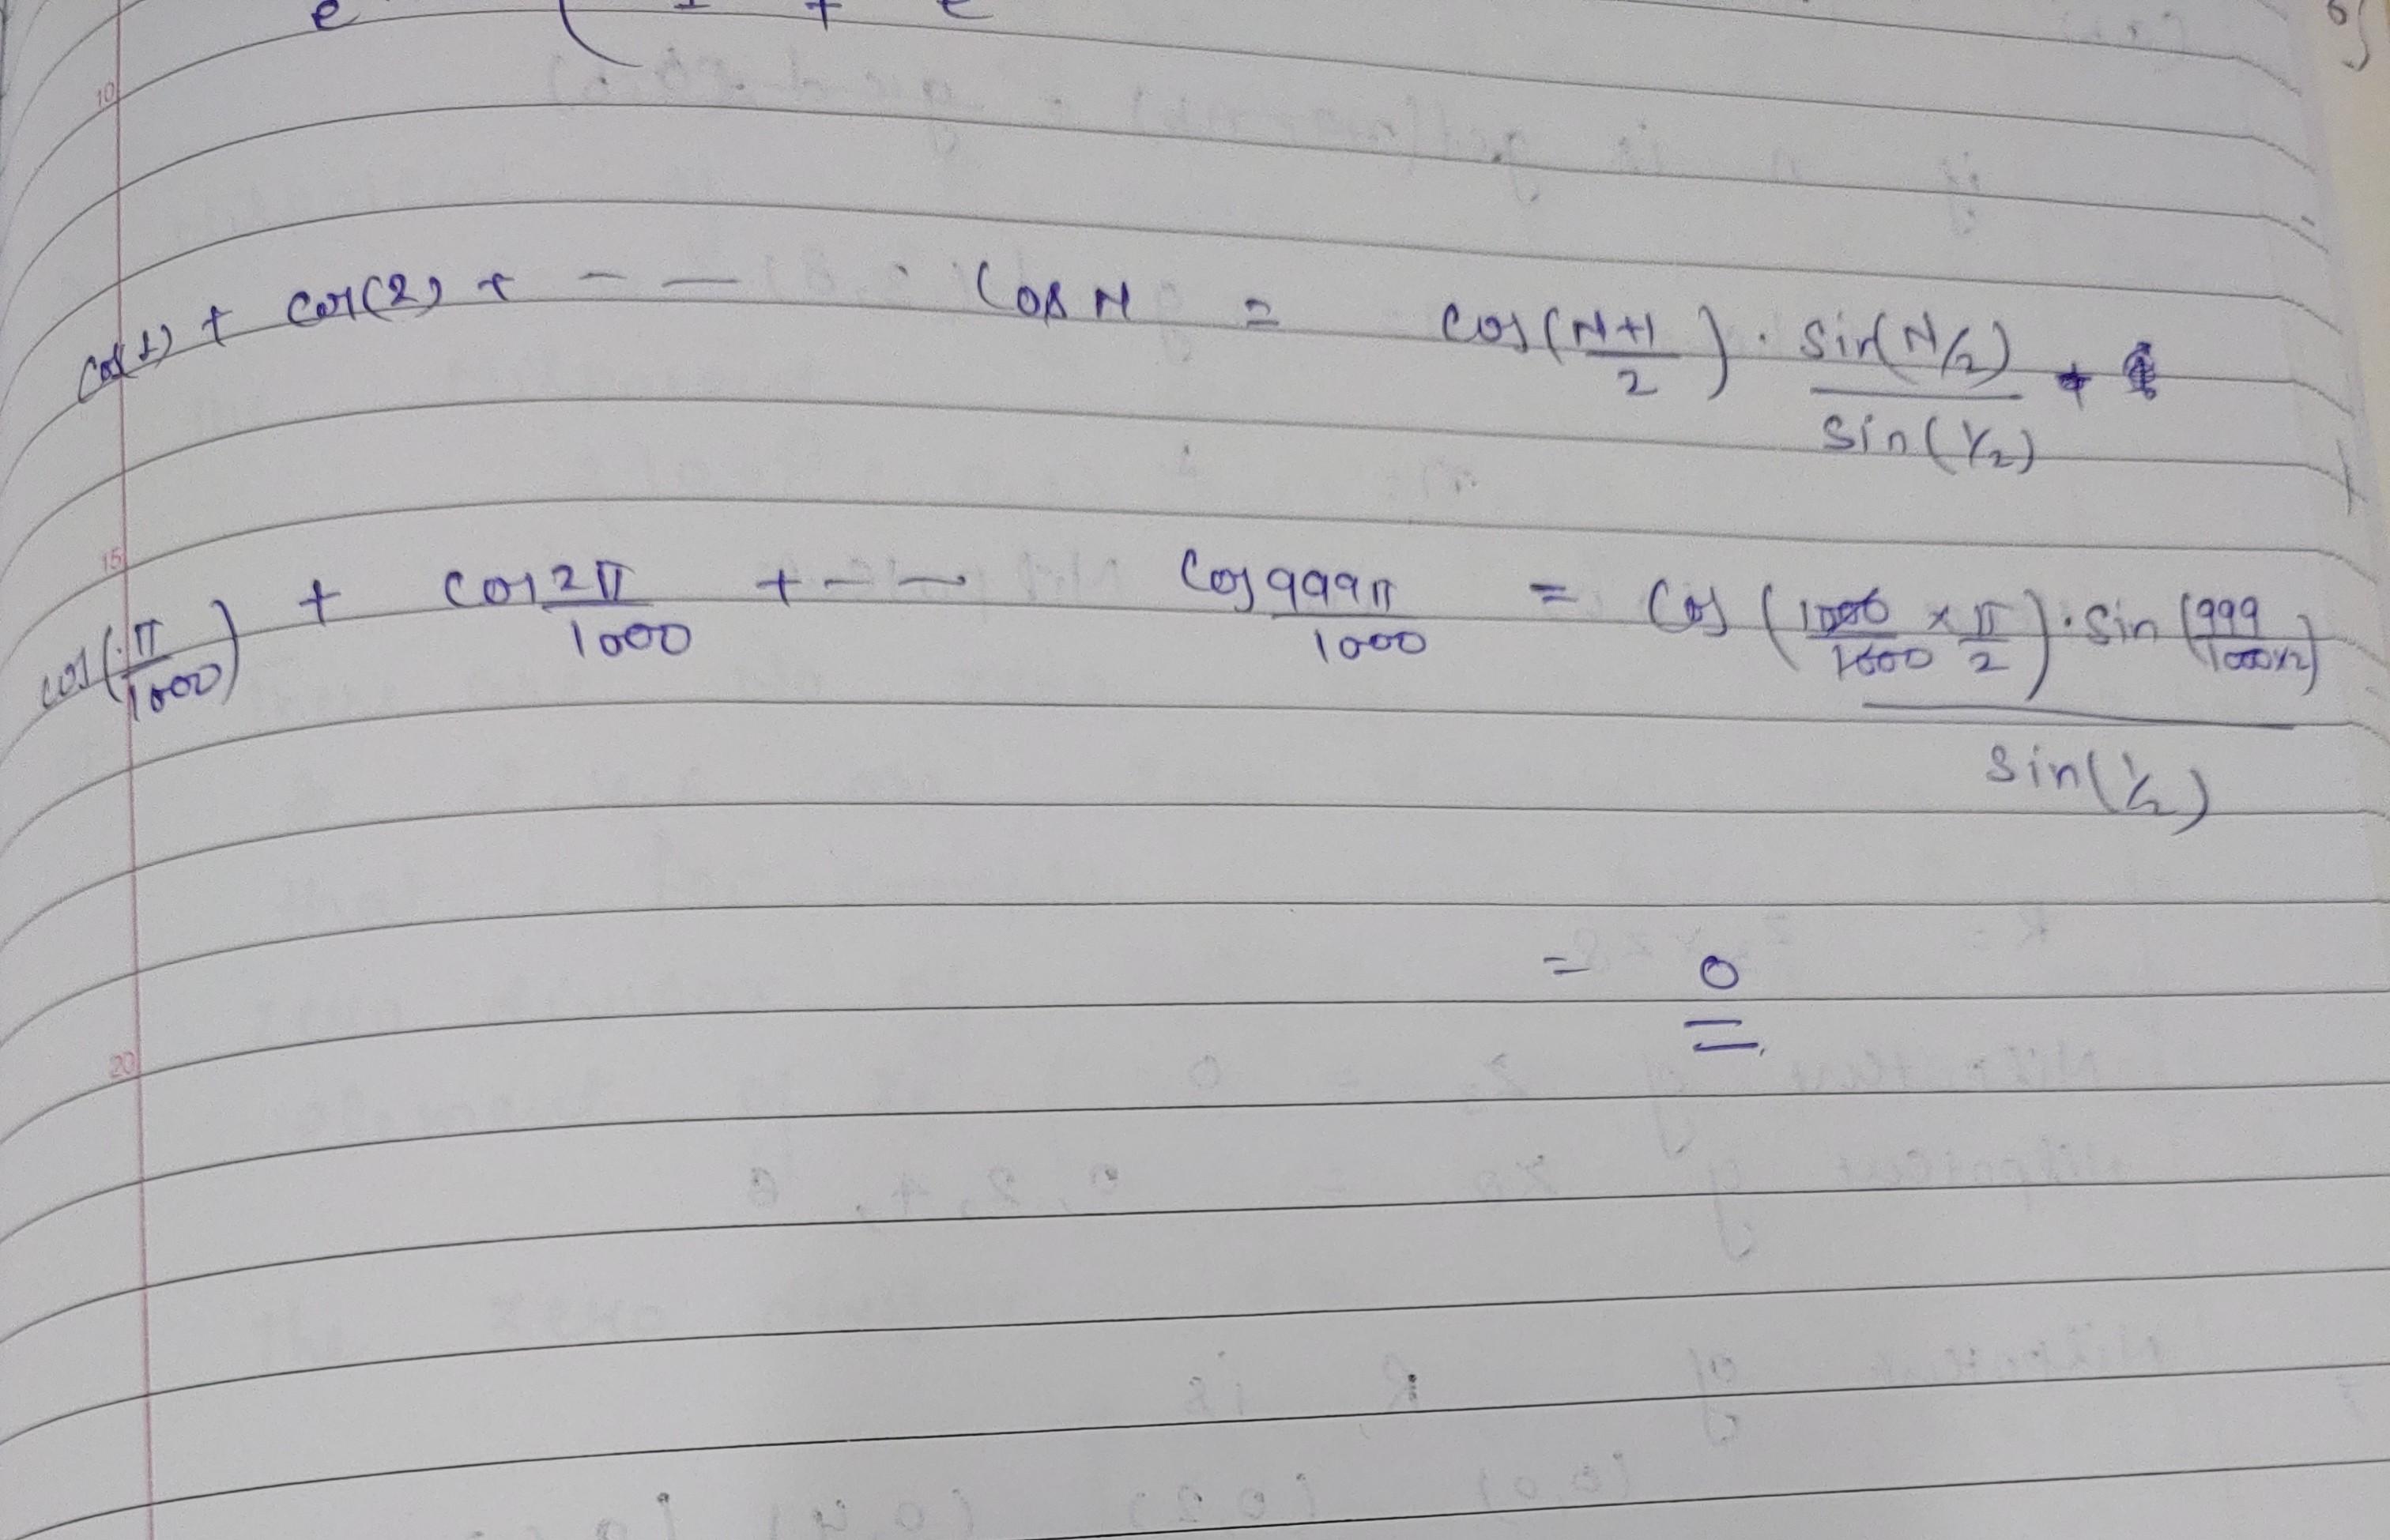 e ( 1 + e
10
cos(1) + cos(2) + - — cos N = cos(N+1/2) . sin(N/2)/sin(1/2) +
15
cos(π/1000) + cos 2π/1000 + - — cos 999π/1000 = cos(1000/1000 × π/2) . sin(999/1000×2)/sin(1/2)
= 0
20